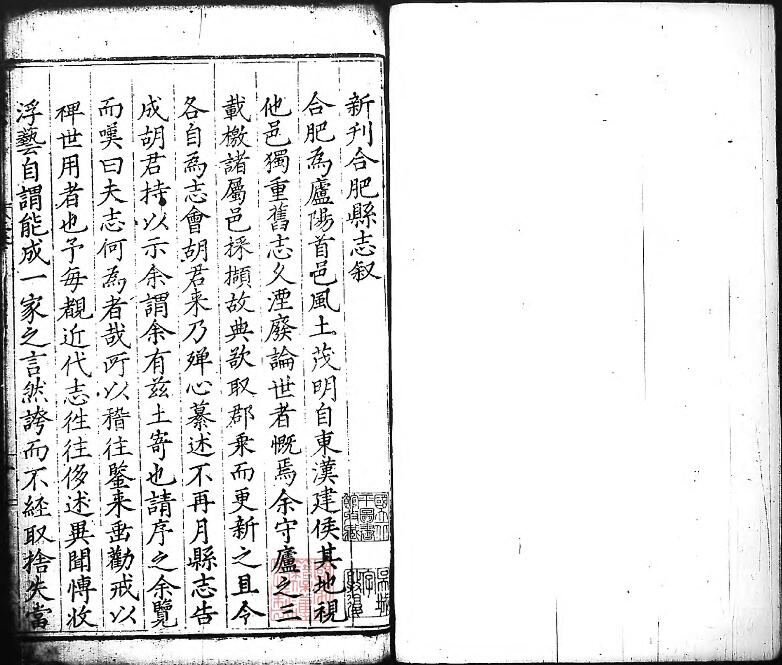 新刊合肥縣志叙
合肥為廬陽首邑風土茂明自東漢建侯其地視
他邑獨重舊志久湮廢論世者慨焉余守廬之三
載檄諸屬邑採擷故典欲取郡乗而更新之且令
各自為志會胡君来乃殫心纂述不再月縣志告
成胡君持以示余謂余有兹土寄也請序之余覽
而嘆曰夫志何為者哉所以稽往鑒来峀勸戒以
裨世用者也予每覩近代志徃往侈述異聞慱收
浮藝自謂能成一家之言然誇而不経取捨失當